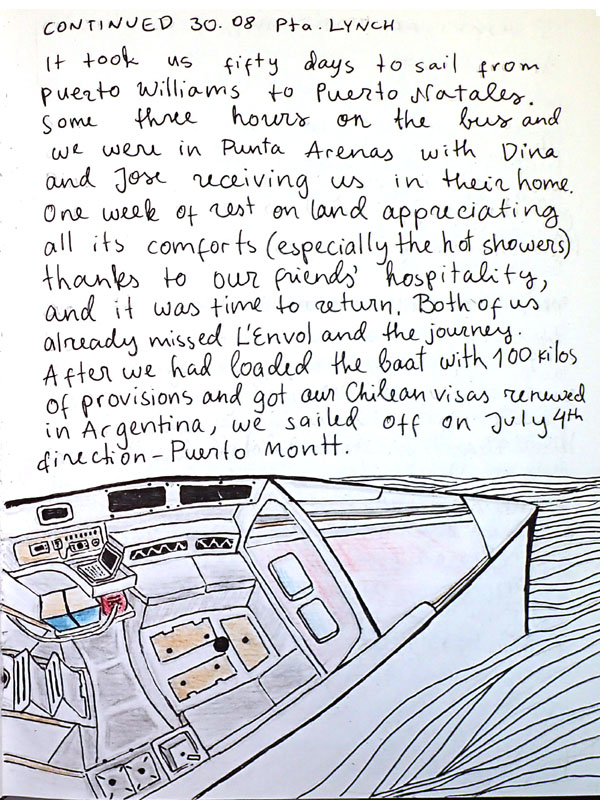 CONTINUED 30.08 Pta. LYNCH
It took us fifty days to sail from
Puerto Williams to Puerto Natales.
Some three hours on the bus and
we were in Punta Arenas with Dina
and Jose receiving us in their home.
One week of rest on land appreciating
all its comforts (especially the hot showers)
thanks to our friends' hospitality,
and it was time to return. Both of us
already missed L'Envol and the journey.
After we had loaded the boat with 100 kilos
of provisions and got our Chilean visas renewed
in Argentina, we sailed off on July 4th
direction - Puerto Montt.